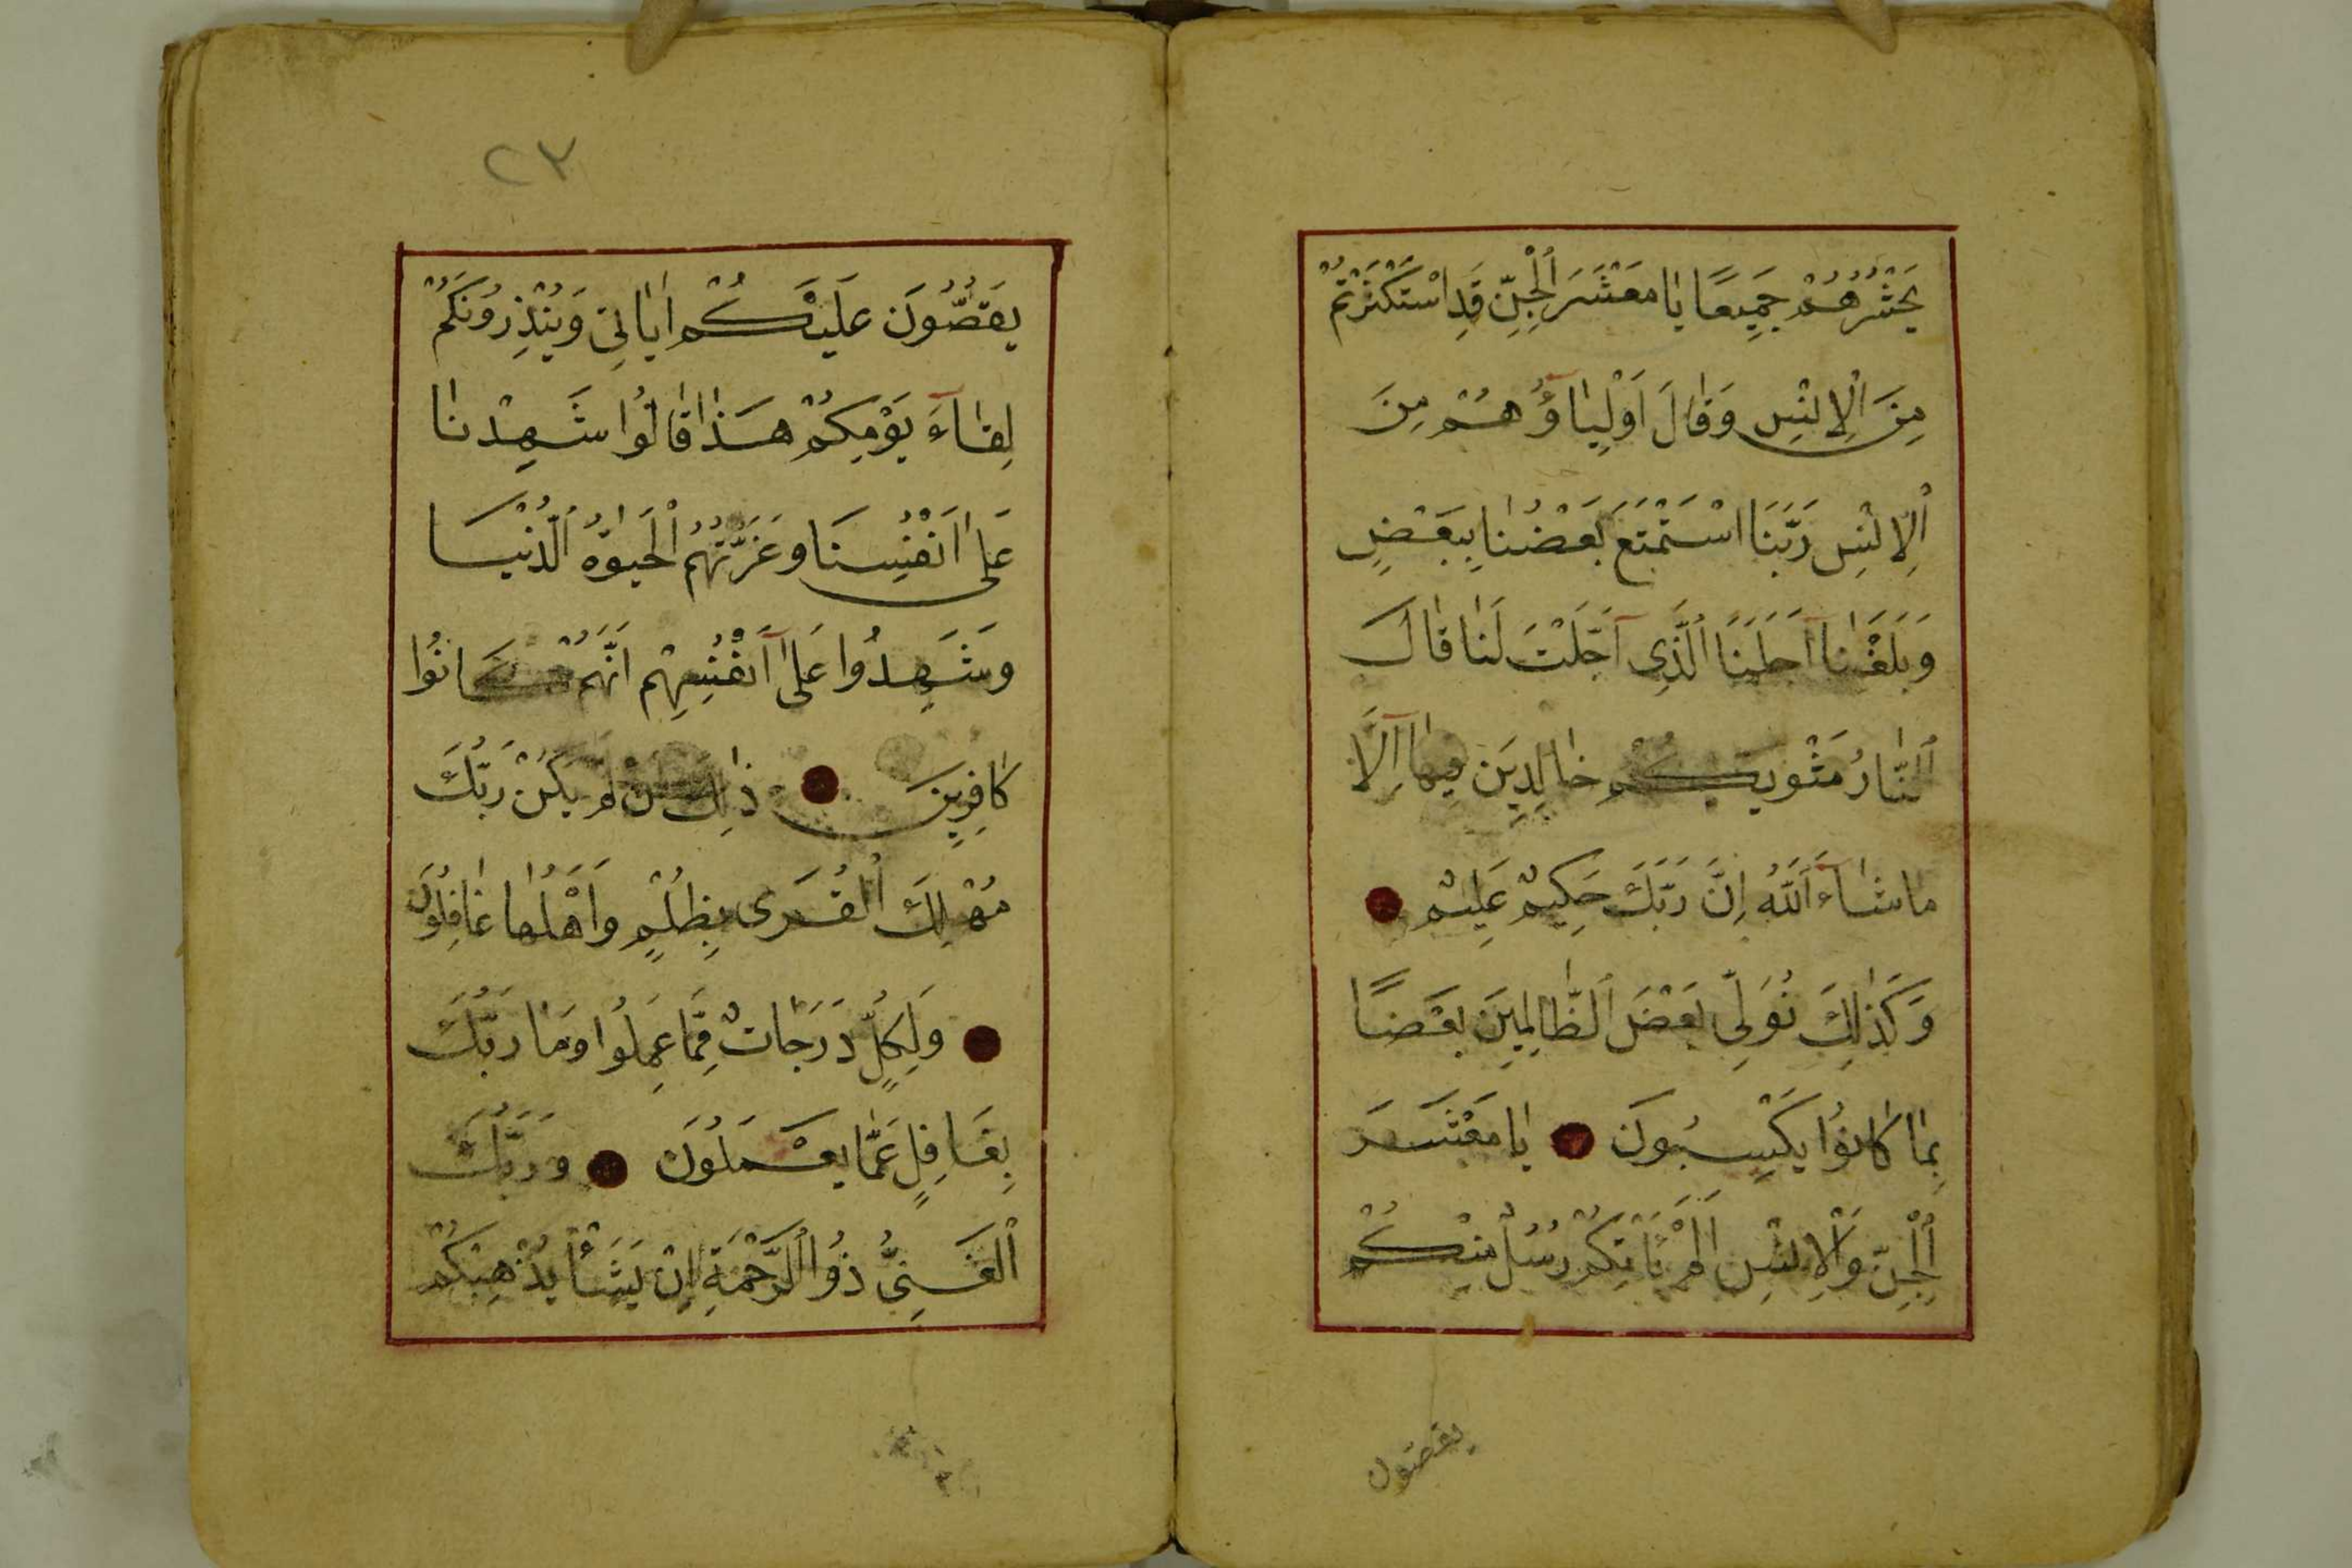 يَحْشُرُهُمْ جَمِيعًا يَا مَعْشَرَ ٱلْجِنِّ قَدِ اسْتَكْثَرْتُمْ
مِنَ ٱلْاِنْسِ وَقَالَ اَوْلِيَاؤُهُمْ مِنَ
ٱلْاِنْسِ رَبَّنَا اسْتَمْتَعَ بَعْضُنَا بِبَعْضٍ
وَبَلَغْنَا اَجَلَنَا ٱلَّذِى اَجَّلْتَ لَنَا قَالَ
ٱلنَّارُ مَثْوٰيكُمْ خَالِدِينَ فِيهَا اِلَّا
مَا شَاءَ ٱللّٰهُ اِنَّ رَبَّكَ حَكِيمٌ عَلِيمٌ
وَكَذٰلِكَ نُوَلِّى بَعْضَ ٱلظَّالِمِينَ بَعْضًا
بِمَا كَانُوا يَكْسِبُونَ يَا مَعْشَرَ
ٱلْجِنِّ وَٱلْاِنْسِ اَلَمْ يَاْتِكُمْ رُسُلٌ مِنْكُمْ
يقصون
٢٣
يَقُصُّونَ عَلَيْكُمْ اٰيَاتِى وَيُنْذِرُونَكُمْ
لِقَاءَ يَوْمِكُمْ هٰذَا قَالُوا شَهِدْنَا
عَلٰى اَنْفُسِنَا وَغَرَّتْهُمُ ٱلْحَيٰوةُ ٱلدُّنْيَا
وَشَهِدُوا عَلٰى اَنْفُسِهِمْ اَنَّهُمْ كَانُوا
كَافِرِينَ ذٰلِكَ اَنْ لَمْ يَكُنْ رَبُّكَ
مُهْلِكَ ٱلْقُرَى بِظُلْمٍ وَاَهْلُهَا غَافِلُونَ
وَلِكُلٍّ دَرَجَاتٌ مِمَّا عَمِلُوا وَمَا رَبُّكَ
بِغَافِلٍ عَمَّا يَعْمَلُونَ وَرَبُّكَ
ٱلْغَنِىُّ ذُو ٱلرَّحْمَةِ اِنْ يَشَأْ يُذْهِبْكُمْ